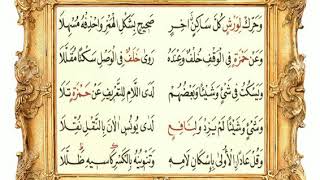 وَحَرِّكْ لِوَرْشٍ كُلَّ سَاكِنٍ آخِرٍ صَحِيحٍ بِشَكْلِ الْهَمْزِ وَاحْذِفْهُ مُسْهِلَا
وَعَنْ حَمْزَةٍ فِي الْوَقْفِ خُلْفٌ وَعِنْدَهُ رَوَى خَلَفٌ فِي الْوَصْلِ سَكْتًا مُقَلَّلَا
وَيَسْكُتُ فِي شَيْءٍ وَشَيْئًا وَبَعْضُهُمْ لَدَى اللَّامِ لِلتَّعْرِيفِ عَنْ حَمْزَةٍ تَلَا
وَشَيْءٍ وَشَيْئًا لَمْ يَزِدْ وَلِنَافِعٍ لَدَى يُونُسٍ آلَانَ بِالنَّقْلِ نُقِّلَا
وَقُلْ عَادًا الْأُولَى بِإِسْكَانِ لَامِهِ وَتَنْوِينُهُ بِالْكَسْرِ كَاسِيهِ ظَلَّلَا